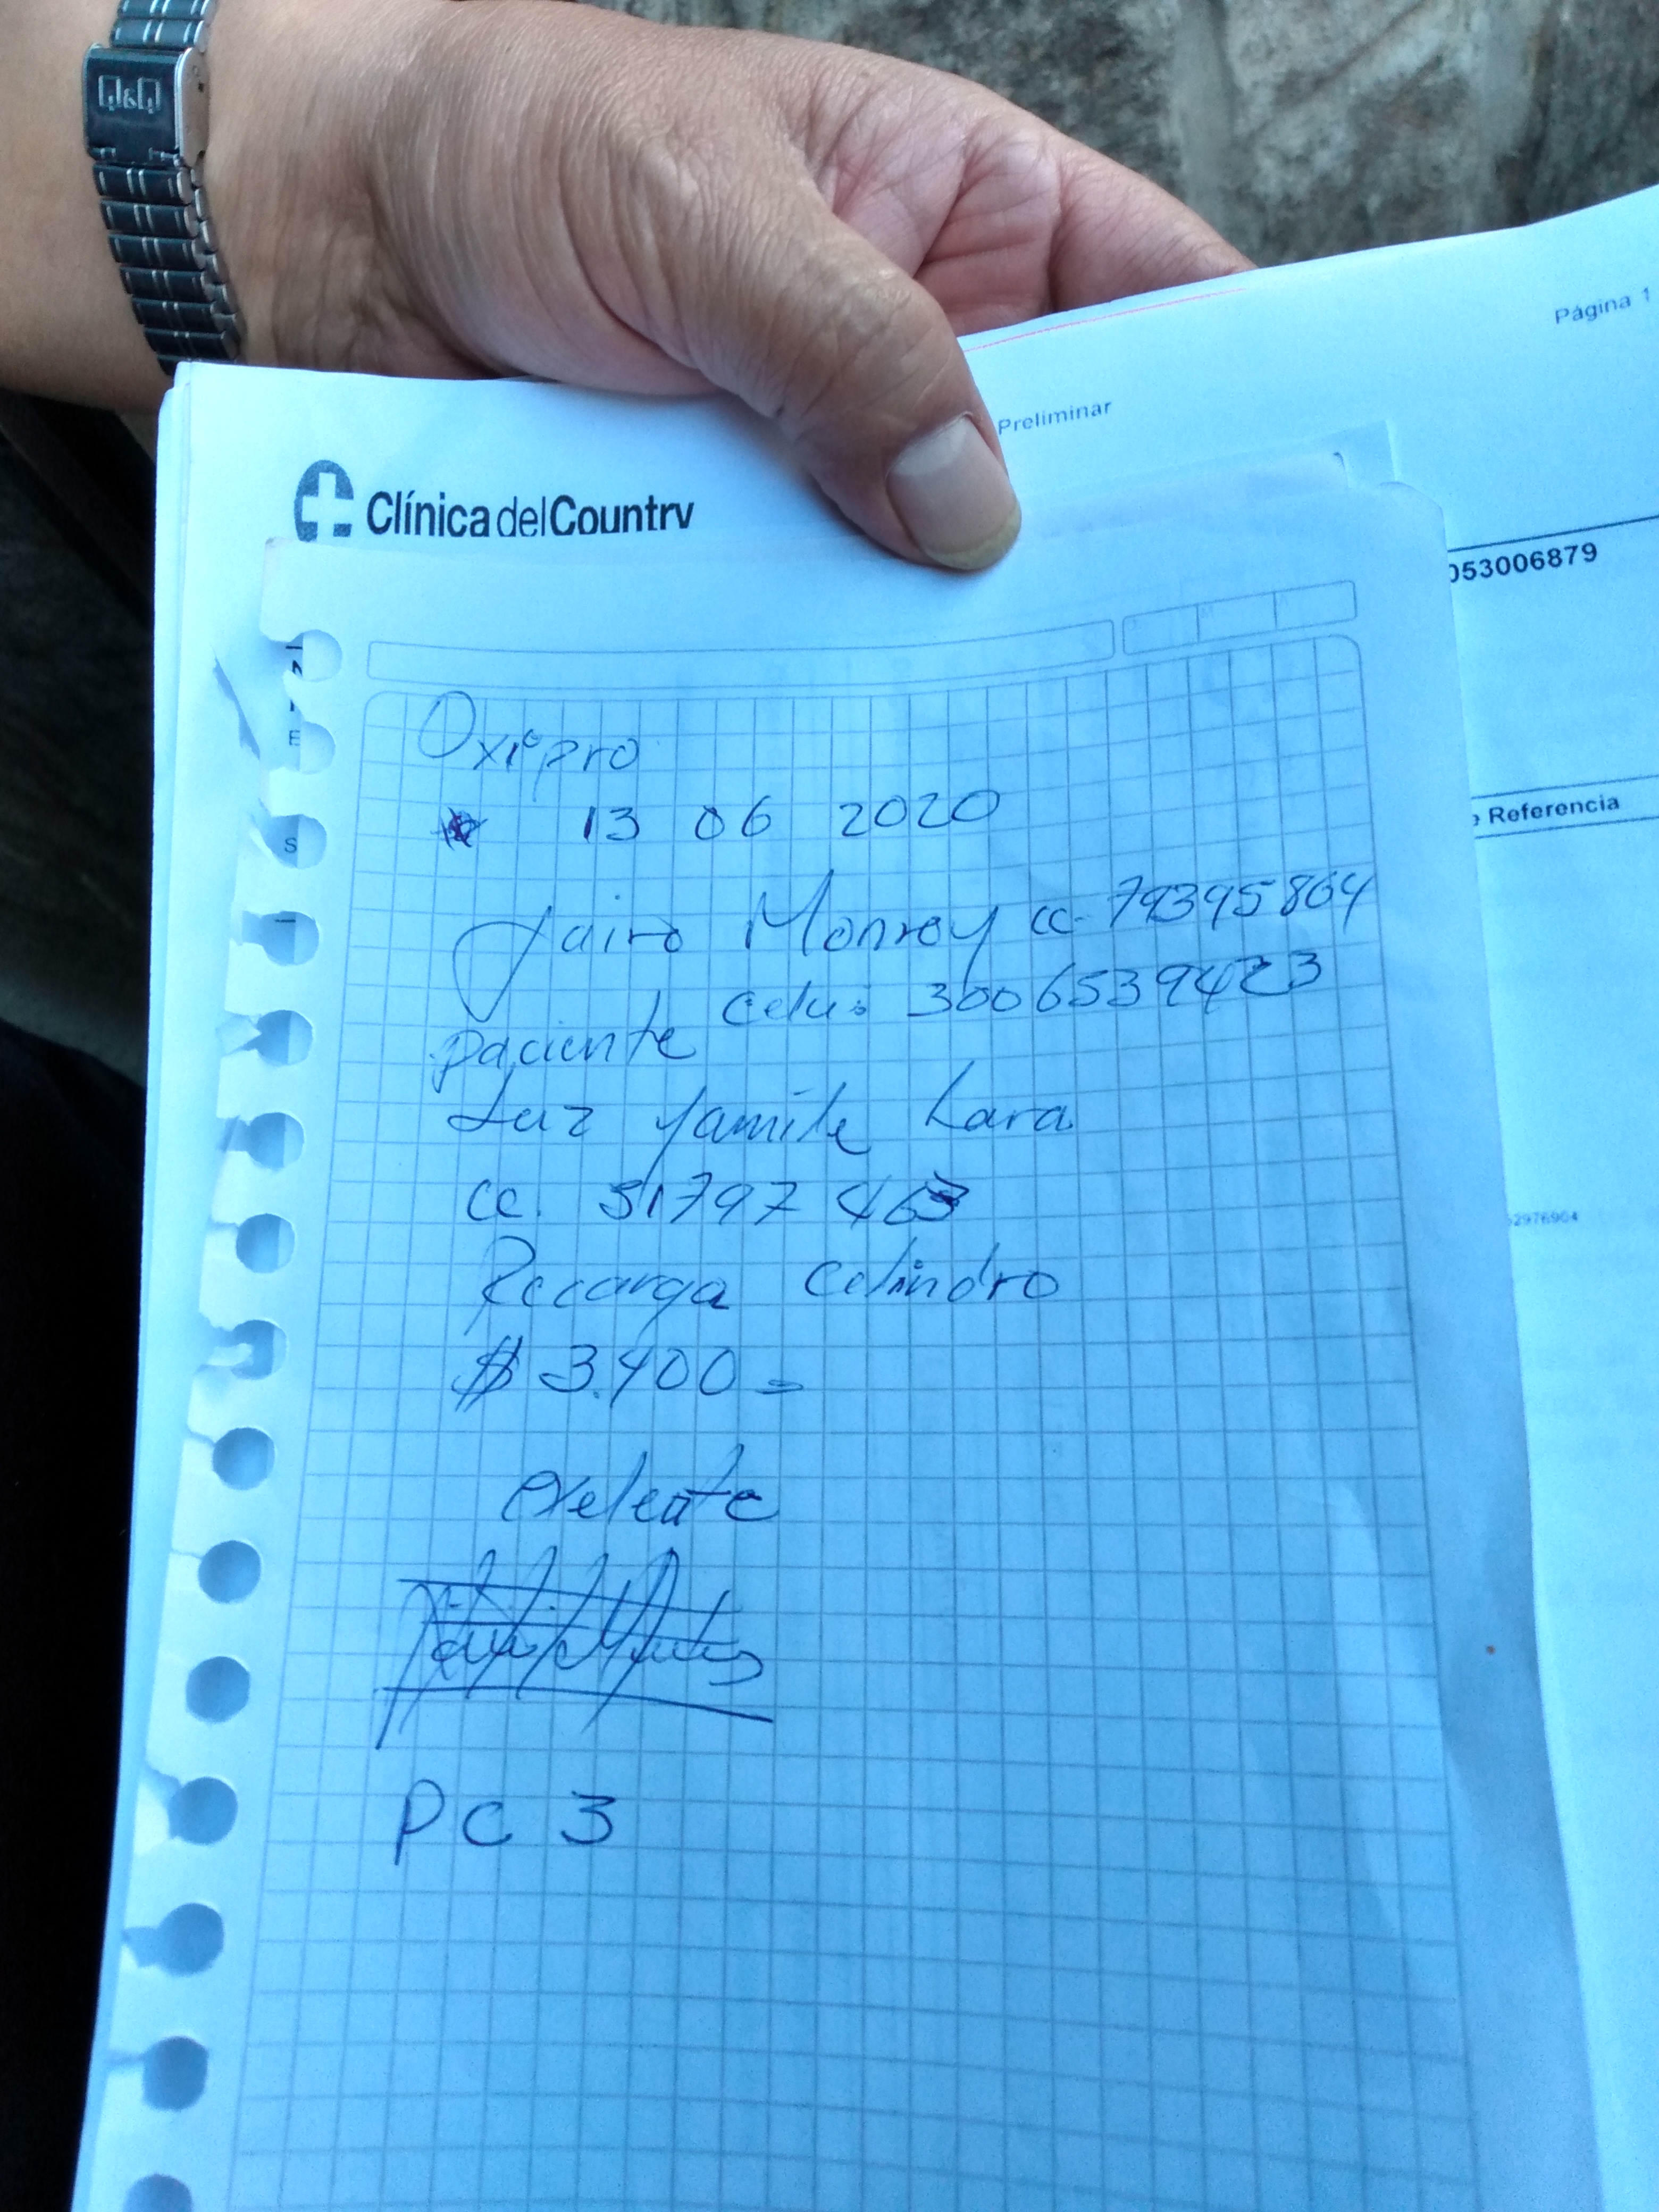 Q&Q
Página 1
Preliminar
Clínica del Country
053006879
Oxipro
13 06 2020
e Referencia
Jairo Monroy cc. 79395864
Celu: 3006539423
paciente
Luz Yamile Lara
cc. 51797 463
52976904
Recarga Celindro
$ 3.400=
exelente
PC 3